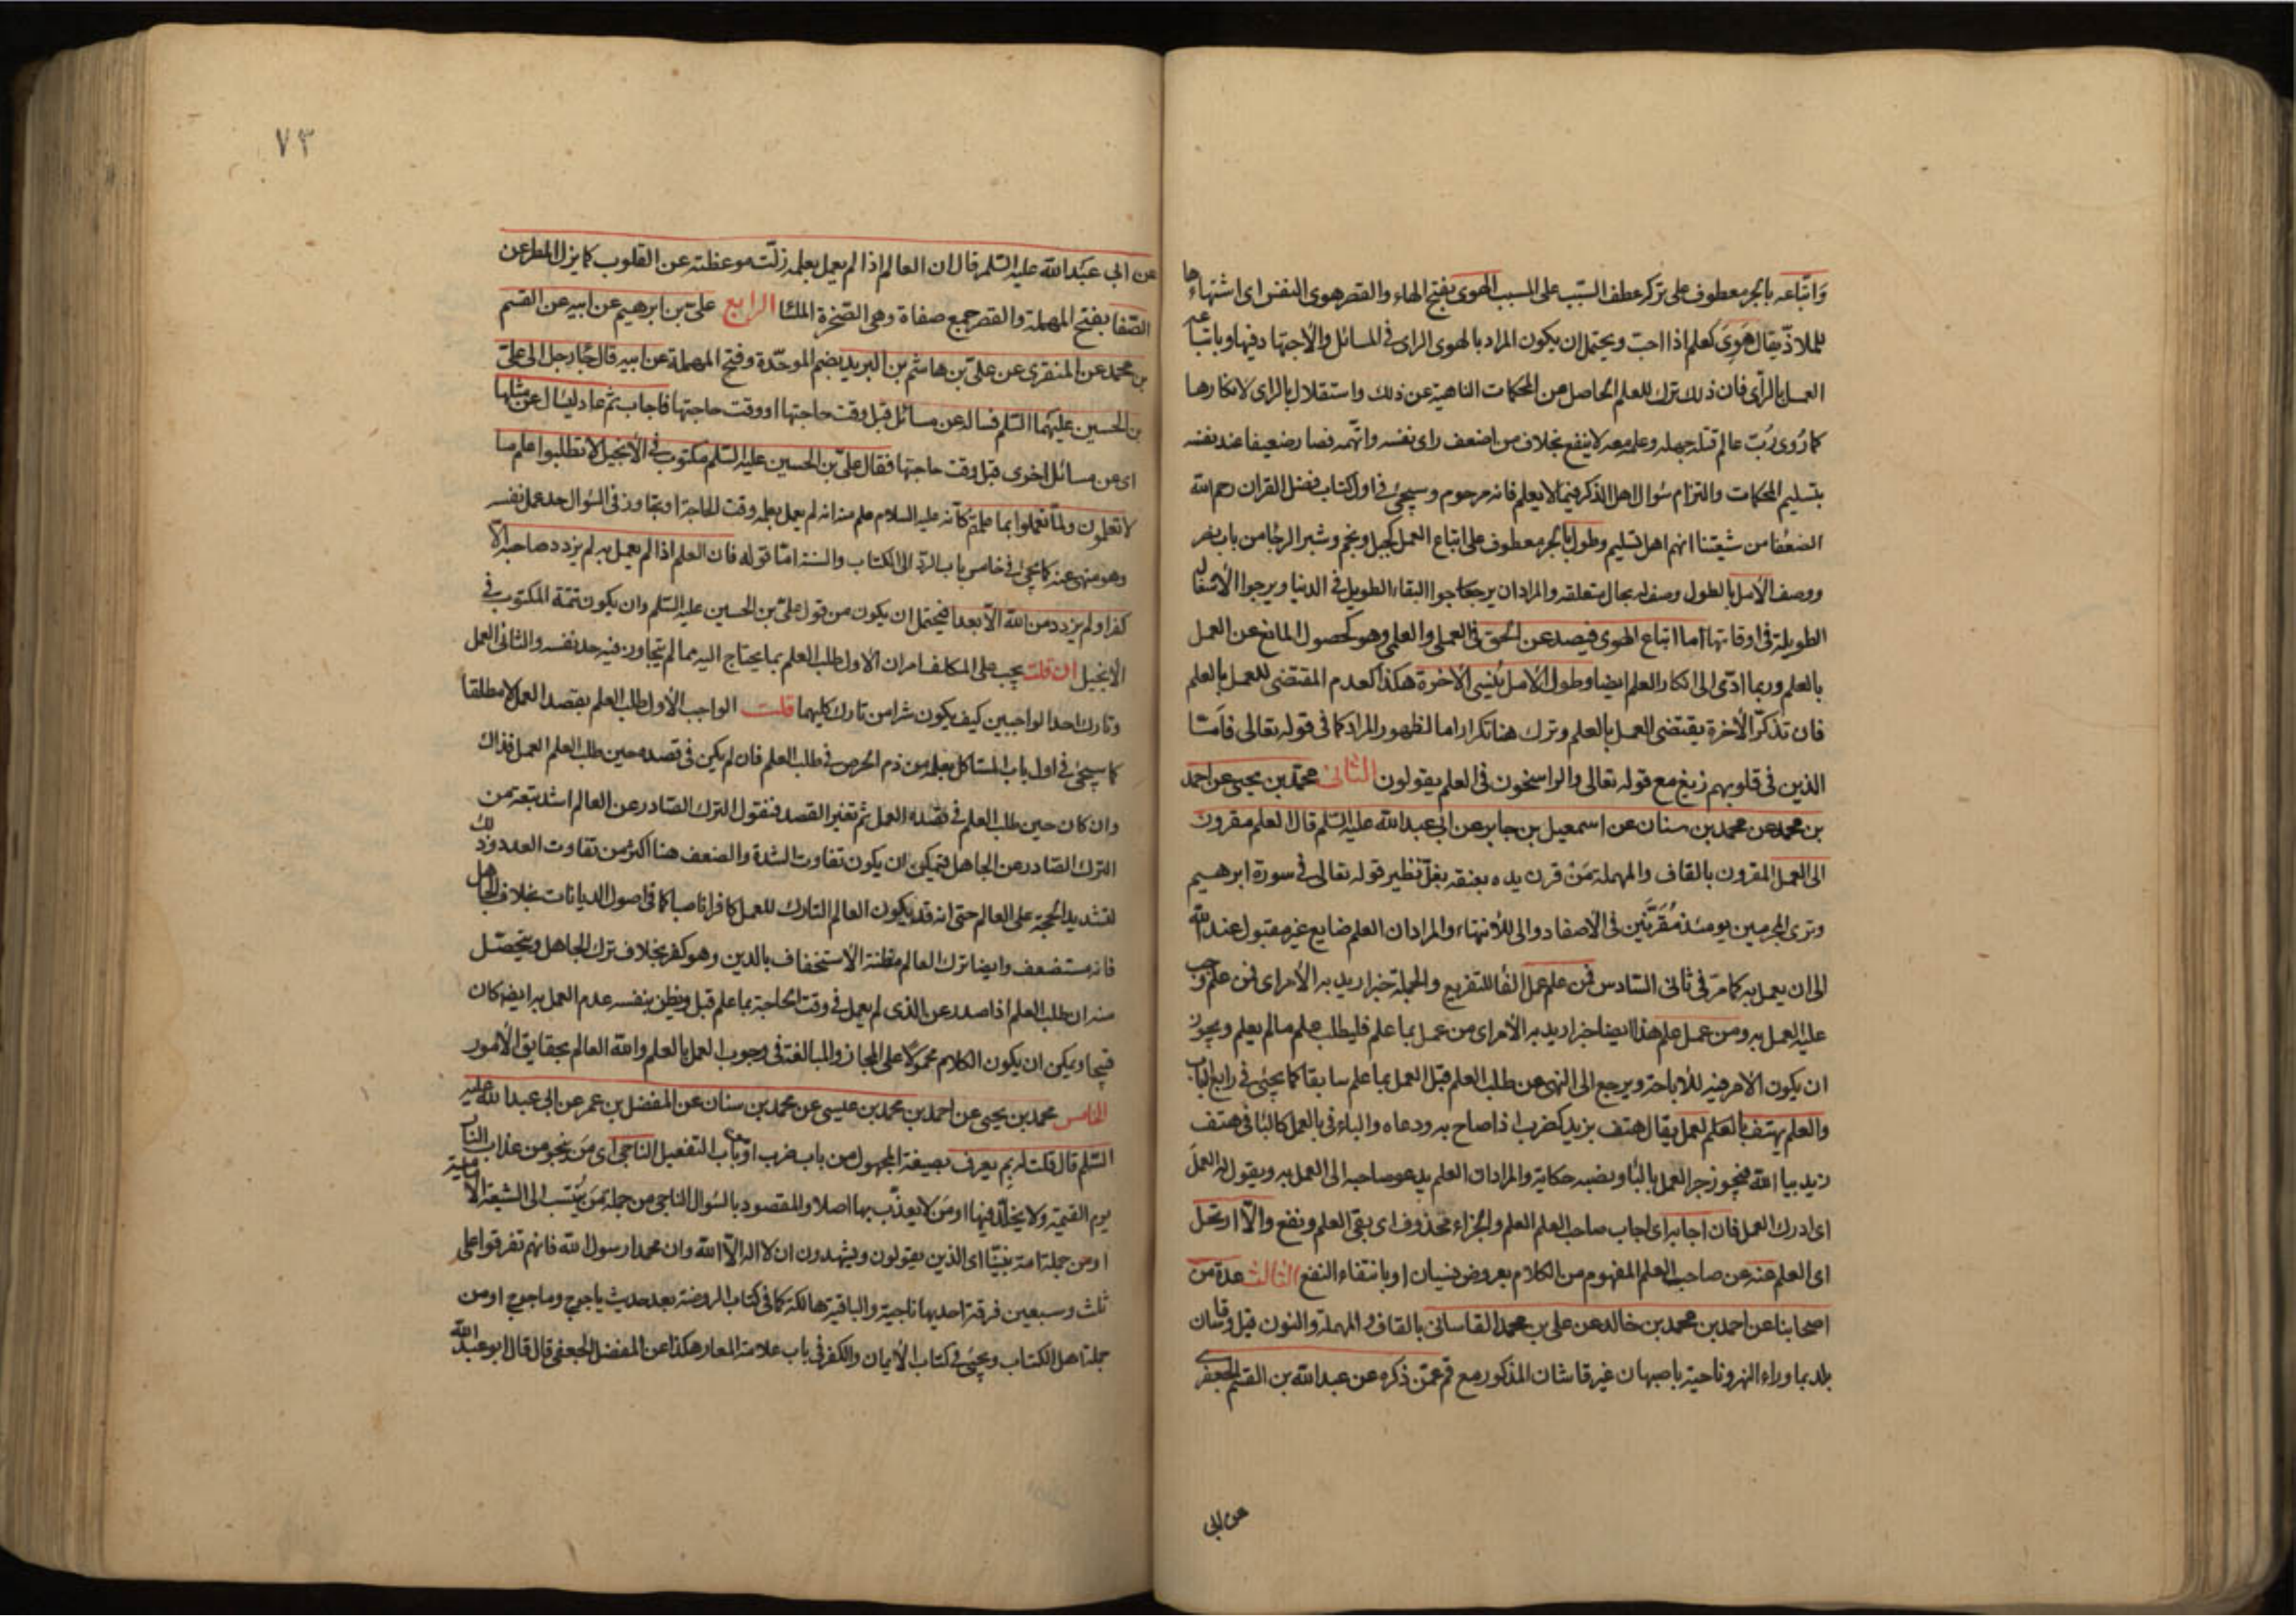 واتباعه بالجر معطوف على تركه عطف السبب على المسبب الهوى بفتح الهاء والقصر هوى النفس اى اشتهاءها
للملاذ يقال هَوِىَ كعلم اذا احب ويحتمل ان يكون المراد بالهوى الراى فى المسائل والاجتهاد فيها وباتباعه
العمل بالرأى فان ذلك ترك للعلم الحاصل من المحكمات الناهية عن ذلك واستقلال بالراى لانكارها
كما رُوى رُبّ عالم قتله جهله وعلمه معه لا ينفع بخلاف من اضعف راى نفسه واتهمه فصار ضعيفا عند نفسه
بتسليم المحكمات والتزام سؤال اهل الذكر فيما لا يعلم فانه مرحوم وسيجئ فى اول كتاب فضل القران رحم الله
الضعفا من شيعتنا انهم اهل تسليم وطول بالجر معطوف على اتباع العمل كجبل ونجم وشبر الرجا من باب نصر
ووصف الامل بالطول وصف له بحال متعلقه والمراد ان يرجوا البقاء الطويل فى الدنيا ويرجوا الاشغال
الطويلة فى اوقاتها اما اتباع الهوى فيصد عن الحق فى العملى والعلمى وهو كحصول المانع عن العمل
بالعلم وربما ادّى الى انكار العلم ايضا وطول الامل يُنسى الاخرة هكذا كعدم المقتضى للعمل بالعلم
فان تذكّر الاخرة يقتضى العمل بالعلم وترك هنا تكرار اما لظهور المراد كما فى قوله تعالى فاَمّا
الذين فى قلوبهم زيغ مع قوله تعالى والراسخون فى العلم يقولون الثانى محمّد بن يحيى عن احمد
بن محمد عن محمد بن سنان عن اسمعيل بن جابر عن ابى عبد الله عليه السّلم قال العلم مقرون
الى العمل المقرون بالقاف والمهملة مَنْ قرن يده بعنقه بغلّ نظير قوله تعالى فى سورة ابرهيم
وترى المجرمين يومئذ مُقَرَّنين فى الاصفاد والى للانتهاء والمراد ان العلم ضايع غير مقبول عند الله
الى ان يعمل به كما مرّ فى ثانى السّادس فمن علم عمل الفا للتفريع والجملة خبر اريد به الامر اى فمن علم وجب
عليه العمل به ومن عمل علم هذا ايضا خبر اريد به الامر اى من عمل بما علم فليطلب علم ما لم يعلم ويجوز
ان يكون الامر فيه للاباحة ويرجع الى النهى عن طلب العلم قبل العمل بما علم سابقا كما يجئ فى رابع الباب
والعلم يهتف بالعَلَم لعمل يقال هتف بزيد كضرب اذا صاح به ودعاه والباء فى بالعمل كالبا فى هتف
زيد بيا الله فيجوز جر العمل بالبا ونصبه حكاية والمراد ان العلم يدعو صاحبه الى العمل به ويقول له العملَ
اى ادرك العمل فان اجابه اى اجاب صاحب العلم العلم والجزاء محذوف اى بقى العلم ونفع والّا ارتحل
اى العلم عنه عن صاحب العلم المفهوم من الكلام بعروض نسيان او بانتفاء النفع الثالث عدة من
اصحابنا عن احمد بن محمد بن خالد عن على بن محمد القاسانى بالقاف والمهملة والنون قيل وقاسان
بلد بما وراء النهر وناحية باصبهان غير قاشان المذكور مع قم عمّن ذكره عن عبد الله بن القسم الجعفرى
عن ابى
٧٣
عن ابى عبد الله عليه السّلم قال ان العالم اذا لم يعمل بعلمه زلّت موعظته عن القلوب كما يزل المطر عن
الصّفا بفتح المهملة والقصر جمع صفاة وهى الصّخرة الملسا الرابع علىّ بن ابرهيم عن ابيه عن القسم
بن محمد عن المنقرى عن علىّ بن هاشم بن البريد بضم الموحّدة وفتح المهملة عن ابيه قال جاء رجل الى علىّ
بن الحسين عليهما السّلم فساله عن مسائل قبل وقت حاجتها او وقت حاجتها فاجاب ثم عاد ليسال عن مثلها
اى عن مسائل اخرى قبل وقت حاجتها فقال علىّ بن الحسين عليه السّلم مكتوب فى الانجيل لا تطلبوا علم ما
لا تعلمون ولمّا تعملوا بما علمتم كأنه عليه السلام علم منه انه لم يعمل بعلمه وقت الحاجة او تجاوز فى السّؤال حد عمل نفسه
وهو منهى عنه كما يجئ فى خامس باب الردّ الى الكتاب والسنة امّا قوله فان العلم اذا لم يعمل به لم يزدد صاحبه الّا
كفرا ولم يزدد من الله الّا بعدا فيحتمل ان يكون من قول علىّ بن الحسين عليه السّلم وان يكون تتمّة المكتوب فى
الانجيل ان قلت يجب على المكلف امران الاول طلب العلم بما يحتاج اليه مما لم يتجاوز فيه حد نفسه والثانى العمل
وتارك احد الواجبين كيف يكون شرا من تارك كليهما قلت الواجب الاول طلب العلم بقصد العمل لا مطلقا
كما سيجئ فى اول باب المستاكل بعلمه من ذم الحرص فى طلب العلم فان لم يكن فى قصده حين طلب العلم العمل فذاك
وان كان حين طلب العلم فى قصده العمل ثم تغير القصد فنقول الترك الصّادر عن العالم اشد تبعة من
الترك الصّادر عن الجاهل فيمكن ان يكون تفاوت الشدة والضعف هنا اكثر من تفاوت العدد وذلك
لتشديد الحجّة على العالم حتى انه قد يكون العالم التارك للعمل كافرا ناصبا كما فى اصول الديانات بخلاف الجاهل
فانه مستضعف وايضا ترك العالم مظنة الاستخفاف بالدين وهو كفر بخلاف ترك الجاهل ويتحصّل
منه ان طلب العلم اذا صدر عن الذى لم يعمل فى وقت الحاجة بما علم قبل ويظن بنفسه عدم العمل به ايضا كان
قبيحا ويمكن ان يكون الكلام محمولا على المجاز والمبالغة فى وجوب العمل بالعلم والله العالم بحقايق الامور
الخامس محمد بن يحيى عن احمد بن محمد بن عيسى عن محمد بن سنان عن المفضل بن عمر عن ابى عبد الله عليه
السّلم قال قلت له بم يعرف بصيغة المجهول من باب ضرب او باب التفعيل الناجى اى مَن ينجو من عذاب النار
يوم القيمة ولا يخلّد فيها او مَن لا يعذّب بها اصلا والمقصود بالسّؤال الناجى من جملة مَن يُنتسب الى الشيعة الامامية
او من جملة امة نبيّنا اى الذين يقولون ويشهدون ان لا اله الّا الله وان محمدا رسول الله فانهم تفرقوا على
ثلث وسبعين فرقة احديها ناجية والباقية هالكة كما فى كتاب الروضة بعد حديث ياجوج وماجوج او من
جملة اهل الكتاب ويجئ فى كتاب الايمان والكفر فى باب علامة المعار هكذا عن المفضل الجعفى قال قال ابو عبد الله